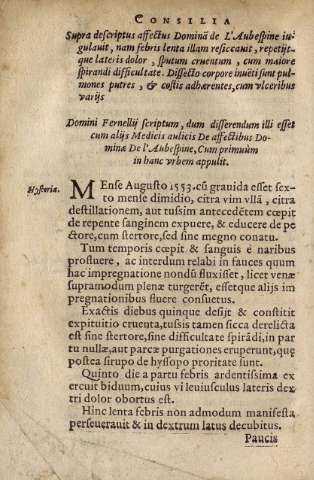 CONSILIA
Supra descriptus affectus Dominæ de L'Aubespine iu-
gulauit, nam febris lenta illam resiccauit, repetijt-
que lateris dolor, sputum cruentum, cum maiore
spirandi difficultate. Dissecto corpore inuēti sunt pul-
mones putres, & costis adhærentes, cum vlceribus
varijs
Domini Fernelij scriptum, dum disserendum illi esset
cum alijs Medicis aulicis De affectibus Do-
minæ De l'Aubespine, Cum primuùm
in hanc vrbem appulit.
Hystoria.
MEnse Augusto 1553. cū grauida esset sex-
to mense dimidio, citra vim vllā, citra
destillationem, aut tussim antecedētem cœpit
de repente sanguinem expuere, & educere de pe-
ctore, cum stertore, sed sine magno conatu.
Tum temporis cœpit & sanguis e naribus
profluere, ac interdum relabi in fauces quum
hac impregnatione nondū fluxisset, licet venæ
supramodum plenæ turgerēt, essetque alijs im
pregnationibus fluere consuetus.
Exactis diebus quinque desijt & constitit
expituitio cruenta, tussis tamen sicca derelicta
est sine stertore, sine difficultate spirādi, in par
tu nullæ, aut parcæ purgationes eruperunt, quę
postea sirupo de hyssopo proritate sunt.
Quinto die a partu febris ardentissima ex
ercuit biduum, cuius vi leuiusculus lateris dex-
tri dolor obortus est.
Hinc lenta febris non admodum manifesta
perseuerauit & in dextrum latus decubitus.
Paucis